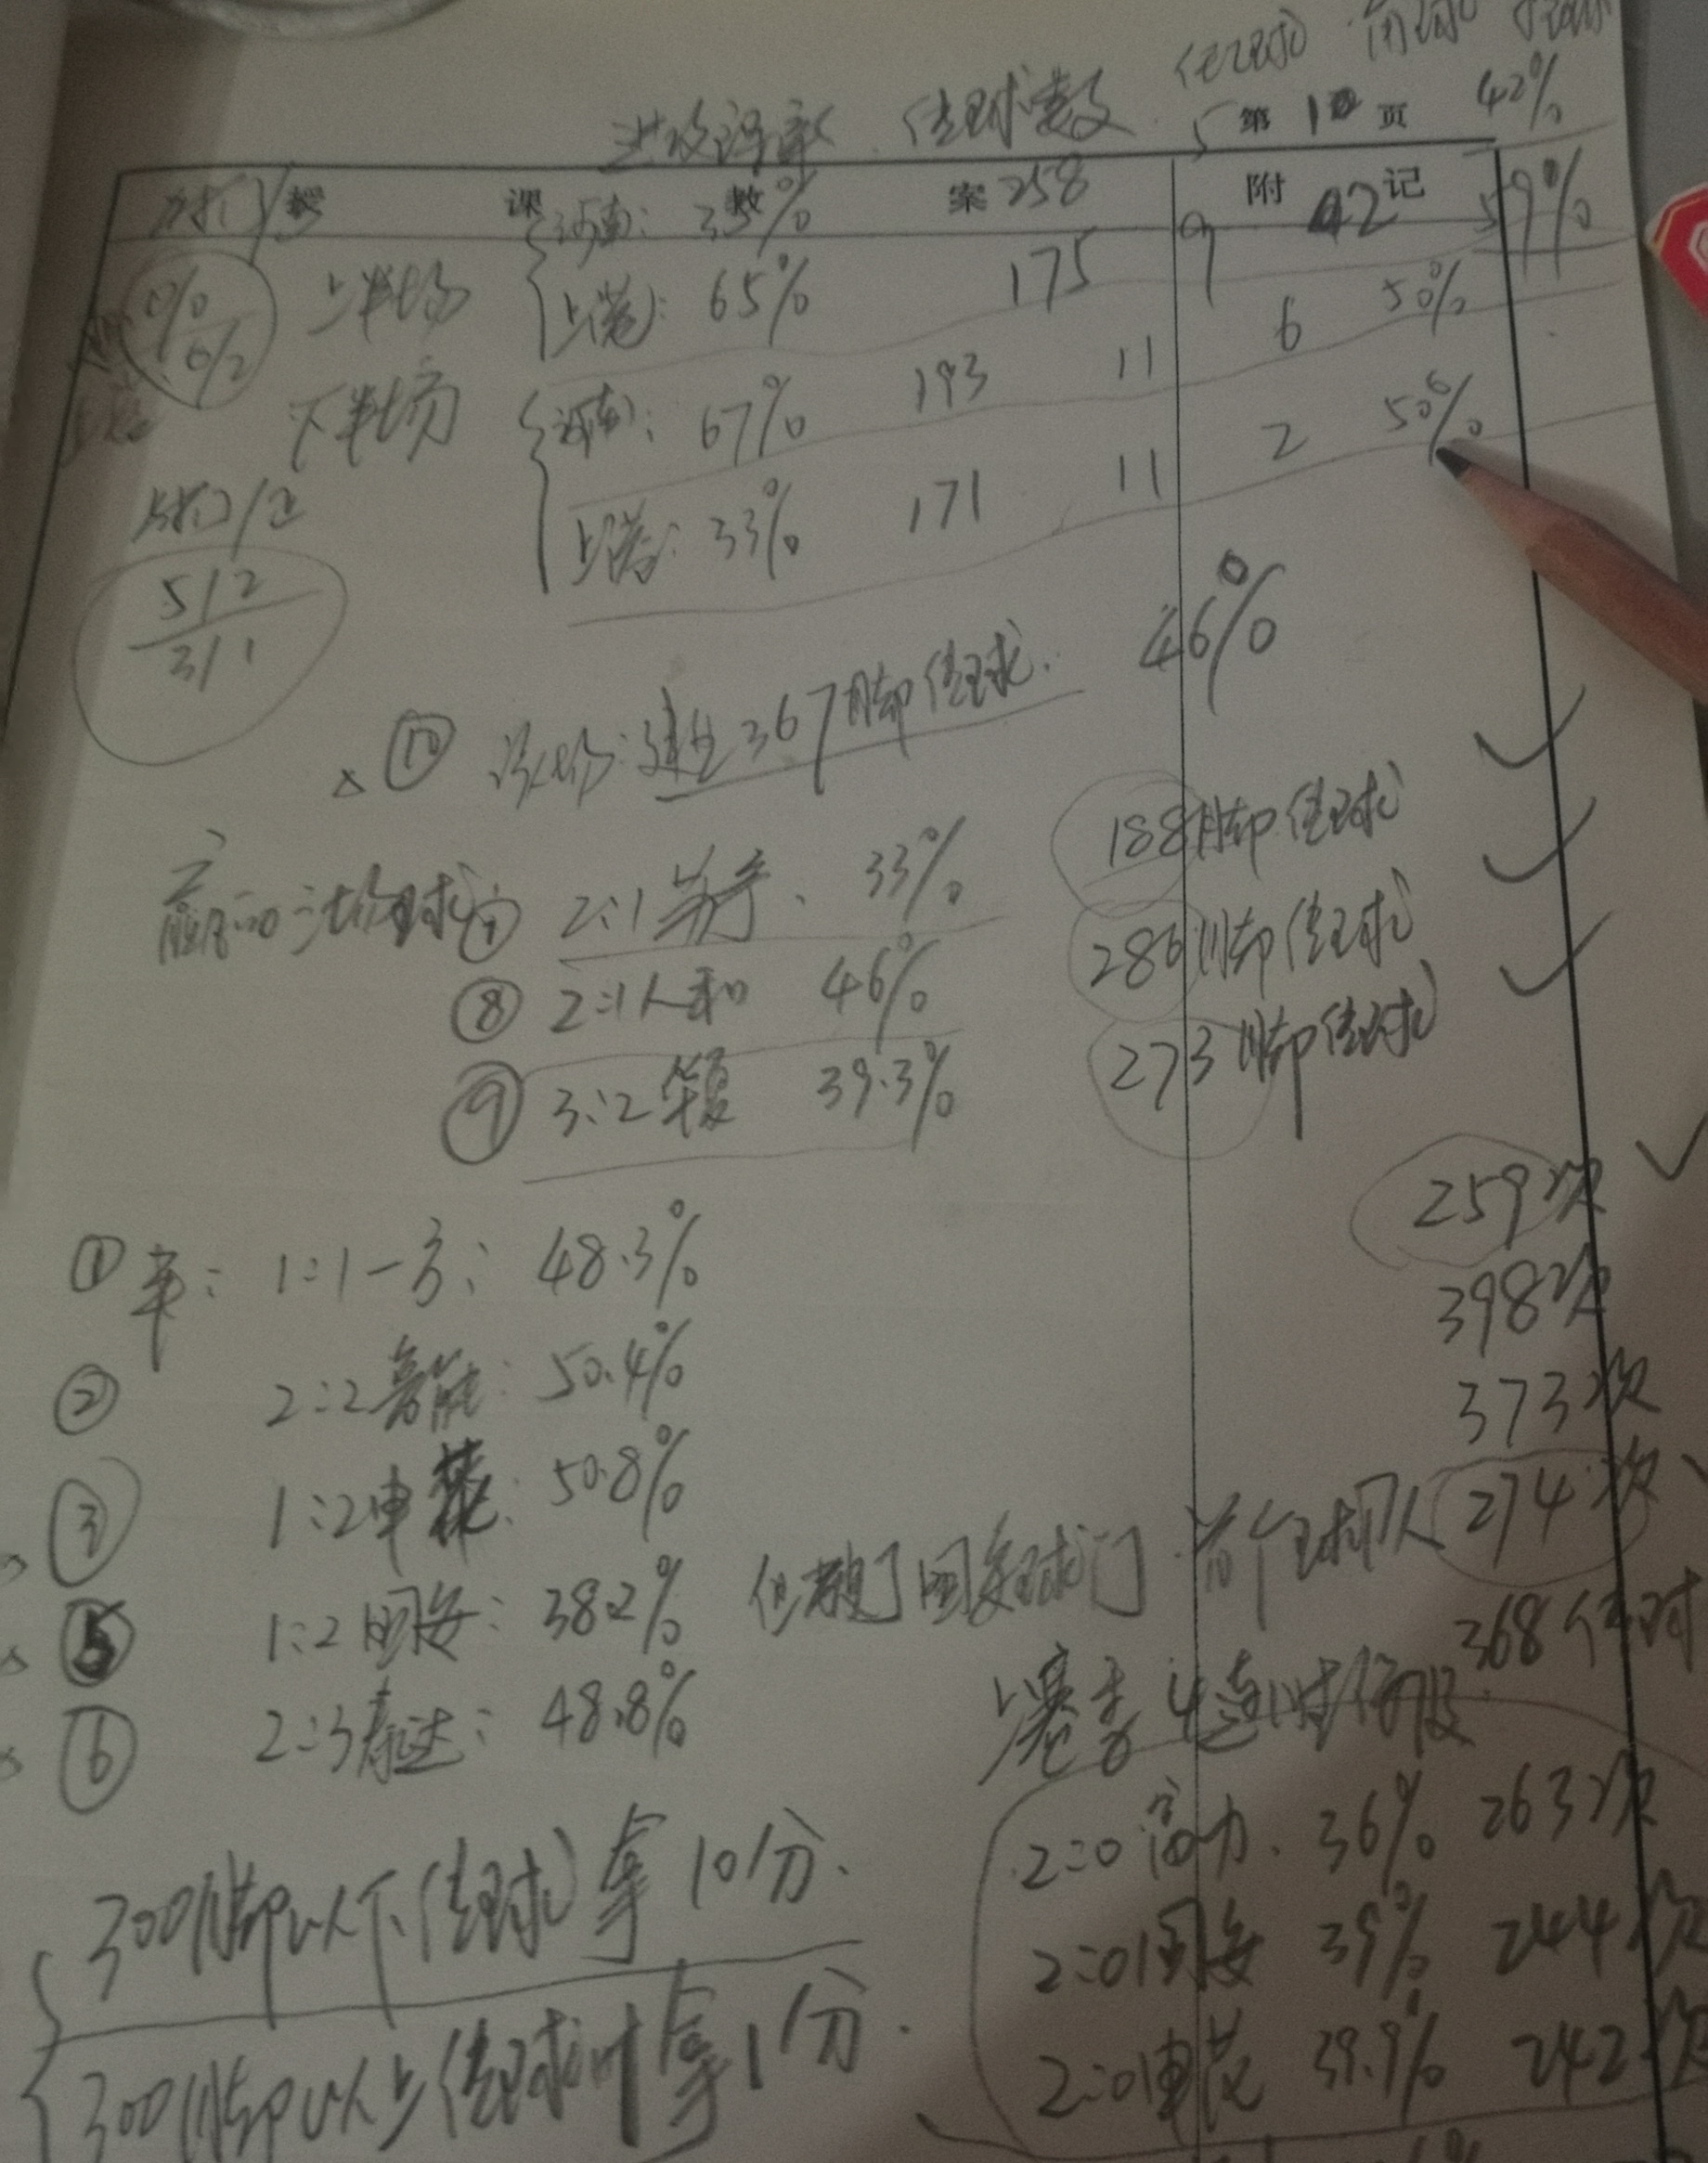 传球数 传球
第 10 页 42%
授 课 教 案 附 记
河南: 35% 258 5 42 59%
上半场 上港: 65% 175 9 6 50%
下半场 河南: 67% 193 11 2 50%
上港: 33% 171 11
射门/正
5/2
3/1
⑩ 该场: 建业367脚传球. 46%
赢的三场球 ⑦ 2:1苏宁、 33% 188脚传球
⑧ 2:1人和 46% 286脚传球
⑨ 3:2华夏 39.3% 273脚传球
① 平: 1:1一方: 48.3% 259次
② 2:2鲁能: 50.4% 398次
③ 1:2申花: 50.8% 373次
⑤ 1:2国安: 38.2% 但破了国安球门 首个球队 274次
⑥ 2:3泰达: 48.8% 368传球
上赛季4连胜
300脚以下传球拿10分.
300脚以上传球时拿1分.
2:0富力. 36% 263次
2:0国安 39% 244次
2:0申花 39.9% 242次